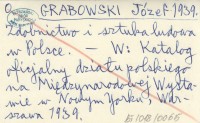 GRABOWSKI Józef 1939.
Zdobnictwo i sztuka ludowa
w Polsce. — W: Katalog
oficjalny działu polskiego
na Międzynarodowej Wysta-
wie w Nowym Yorku, War-
szawa 1939.